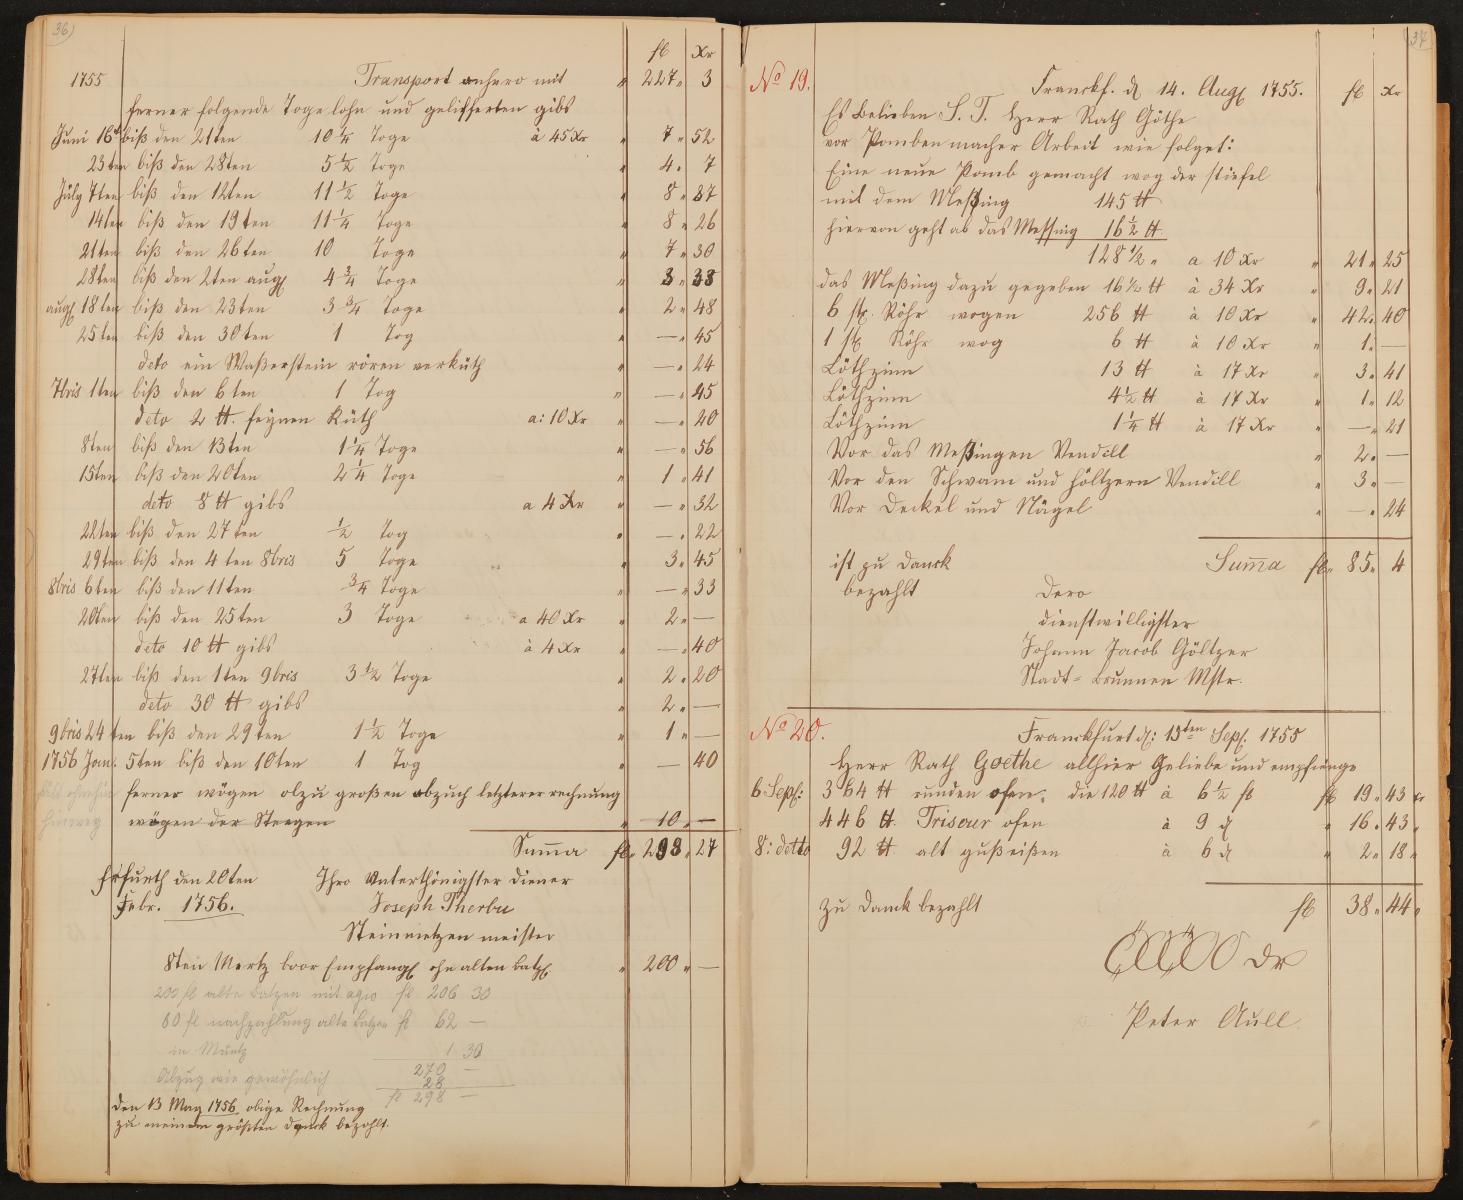 36
fl Xr
1755 Transport anhero mit " 227 " 3
ferner folgende Toge lohn und gelifferten gibs
Juni 16t biß den 21ten 10 1/4 Toge à 45 Xr " 7 " 52
23ten biß den 28ten 5 1/2 Toge " 4 " 7
July 7ten biß den 12ten 11 1/2 Toge " 8 " 37
14ten biß den 19ten 11 1/4 Toge " 8 " 26
21ten biß den 26ten 10 Toge " 7 " 30
28ten biß den 2ten aug 4 3/4 Toge " 3 " 33
aug 18ten biß den 23ten 3 3/4 Toge " 2 " 48
25ten biß den 30ten 1 Tog " — " 45
deto ein Waßerstein rören verküth " — " 24
7bris 1ten biß den 6ten 1 Tog " — " 45
deto 2 ℔. feynen Küth a: 10 Xr " — " 20
8ten biß den 13ten 1 1/4 Toge " — " 56
15ten biß den 20ten 2 1/4 Toge " 1 " 41
deto 8 ℔ gibs a 4 Xr " — " 32
22ten biß den 27ten 1/2 Tog " — " 22
29ten biß den 4ten 8bris 5 Toge " 3 " 45
8bris 6ten biß den 11ten 3/4 Toge " — " 33
20ten biß den 25ten 3 Toge a 40 Xr " 2 " —
deto 10 ℔ gibs à 4 Xr " — " 40
27ten biß den 1ten 9bris 3 1/2 Toge " 2 " 20
deto 30 ℔ gibs " 2 " —
9bris 24ten biß den 29ten 1 1/2 Toge " 1 " —
1756 Jan. 5ten biß den 10ten 1 Tog " — 40
ferner wögen olzu großen abzuch letzterer rechnung
hinweg wögen der Steegen " 10 " —
Suma fl " 298 " 27
Erfurth den 20ten Ihro Unterthönigster Diener
Febr. 1756. Joseph Therbu
Steinmetzen meister
8ten Mertz boor Empfang ohn alten batz " 200 " —
200 fl alte batzen mit agio fl 206 30
60 fl nachzahlung alte batzen fl 62 —
in Muntz 1 30
270 —
Abzug wie gewöhnlich 28
fl 298 —
den 13 May 1756 obige Rechnung
zu meinem größten danck bezahlt.
37
No 19. Franckf. d 14. Aug 1755. fl Xr
Es belieben S. T. Herr Rath Göthe
vor Pomben macher Arbeit wie folget:
Eine neue Pomb gemacht wog der stiefel
mit dem Meßing 145 ℔
hiervon geht ab das Messing 16 1/2 ℔
128 1/2 " a 10 Xr " 21 " 25
das Meßing dazu gegeben 16 1/2 ℔ à 34 Xr " 9 " 21
6 st. Röhr wogen 256 ℔ à 10 Xr " 42 " 40
1 st. Röhr wog 6 ℔ à 10 Xr " 1 " —
Löthzinn 13 ℔ à 17 Xr " 3 " 41
Löthzinn 4 1/2 ℔ à 17 Xr " 1 " 12
Löthzinn 1 1/4 ℔ à 17 Xr " — " 21
Vor das Meßingen Vendill " 2 " —
Vor den Schwam und höltzern Vendill " 3 " —
Vor Deckel und Nägel " — " 24
ist zu Danck Suma fl " 85 " 4
bezahlt Dero
dienstwilligster
Johann Jacob Göltzer
Stadt-Brunnen Mstr.
No 20. Franckfurt d: 13ten Sep. 1755
Herr Rath Goethe allhier Geliebe und empfienge
6 Sep: 364 ℔ runden ofen. die 120 ℔ à 6 1/2 fl fl 19 " 43 xr
446 ℔. Triseur ofen à 9 d " 16 " 43 "
8: detto 92 ℔ alt gußeißen à 6 d " 2 " 18 "
zu Danck bezahlt fl 38 " 44 "
Peter Aull